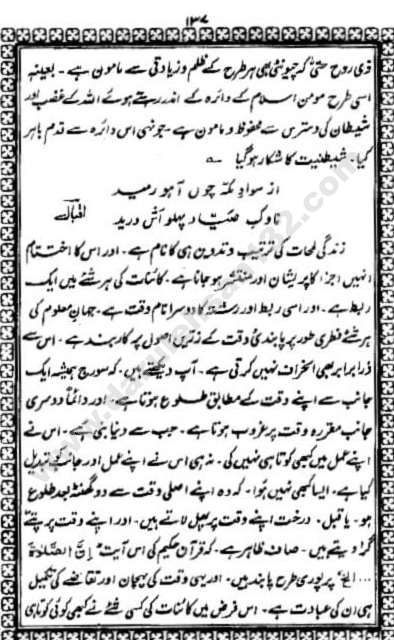 ۱۳۷
ذی روح حتیٰ کہ چیونٹی بھی ہر طرح کے ظلم و زیادتی سے مامون ہے ۔ بعینہٖ
اسی طرح مومن اسلام کے دائرہ کے اندر رہتے ہوئے اللہ کے غضب اور
شیطان کی دسترس سے محفوظ و مامون ہے ۔ جونہی اس دائرہ سے قدم باہر
گیا ۔ شیطنیت کا شکار ہو گیا ؎
از سوادِ مکہ چوں آہو رمید
ناوکِ صیاد پہلو اش درید اقبالؒ
زندگی لمحات کی ترتیب و تدوین ہی کا نام ہے ۔ اور اس کا اختتام
انہیں اجزا کا پریشان اور منتشر ہو جانا ہے ۔ کائنات کی ہر شئے میں ایک
ربط ہے ۔ اور اسی ربط اور رشتہ کا دوسرا نام وقت ہے ۔ جہانِ معلوم کی
ہر شئے فطری طور پر پابندیٔ وقت کے زریں اصول پر کاربند ہے ۔ اس سے
ذرا برابر بھی انحراف نہیں کرتی ہے ۔ آپ دیکھتے ہیں ۔ کہ سورج ہمیشہ ایک
جانب سے اپنے وقت کے مطابق طلوع ہوتا ہے ۔ اور دائماً دوسری
جانب مقررہ وقت پر غروب ہوتا ہے ۔ جب سے دنیا بنی ہے ۔ اس نے
اپنے عمل میں کبھی کوتاہی نہیں کی ۔ نہ ہی اس نے اپنے عمل اور جانب کو تبدیل
کیا ہے ۔ ایسا کبھی نہیں ہوا ۔ کہ وہ اپنے اصلی وقت سے دو گھنٹہ بعد طلوع
ہو ۔ یا قبل ۔ درخت اپنے وقت پر پھل لاتے ہیں ۔ اور اپنے وقت پر پتے
گرا دیتے ہیں ۔ صاف ظاہر ہے ۔ کہ قرآن حکیم کی اس آیت " اِنَّ الصَّلٰوۃَ
... الخ " پر پوری طرح پابند ہیں ۔ اور یہی وقت کی پہچان اور تقاضے کی تکمیل
ہی ان کی عبادت ہے ۔ اس فرض میں کائنات کی کسی شئے نے کبھی کوئی کوتاہی